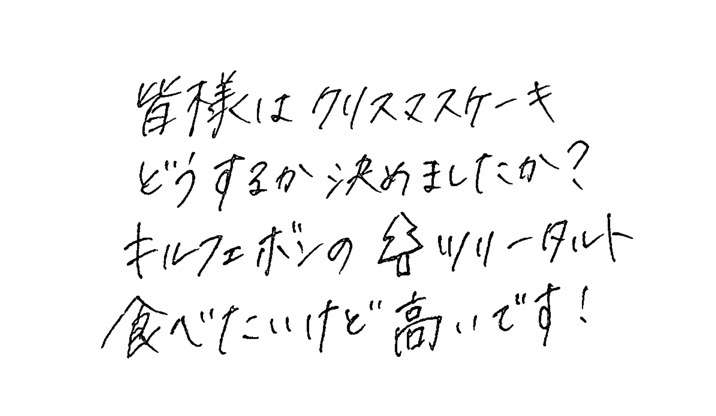 皆様はクリスマスケーキ
どうするか決めましたか?
キルフェボンの🎄ツリータルト
食べたいけど高いです!